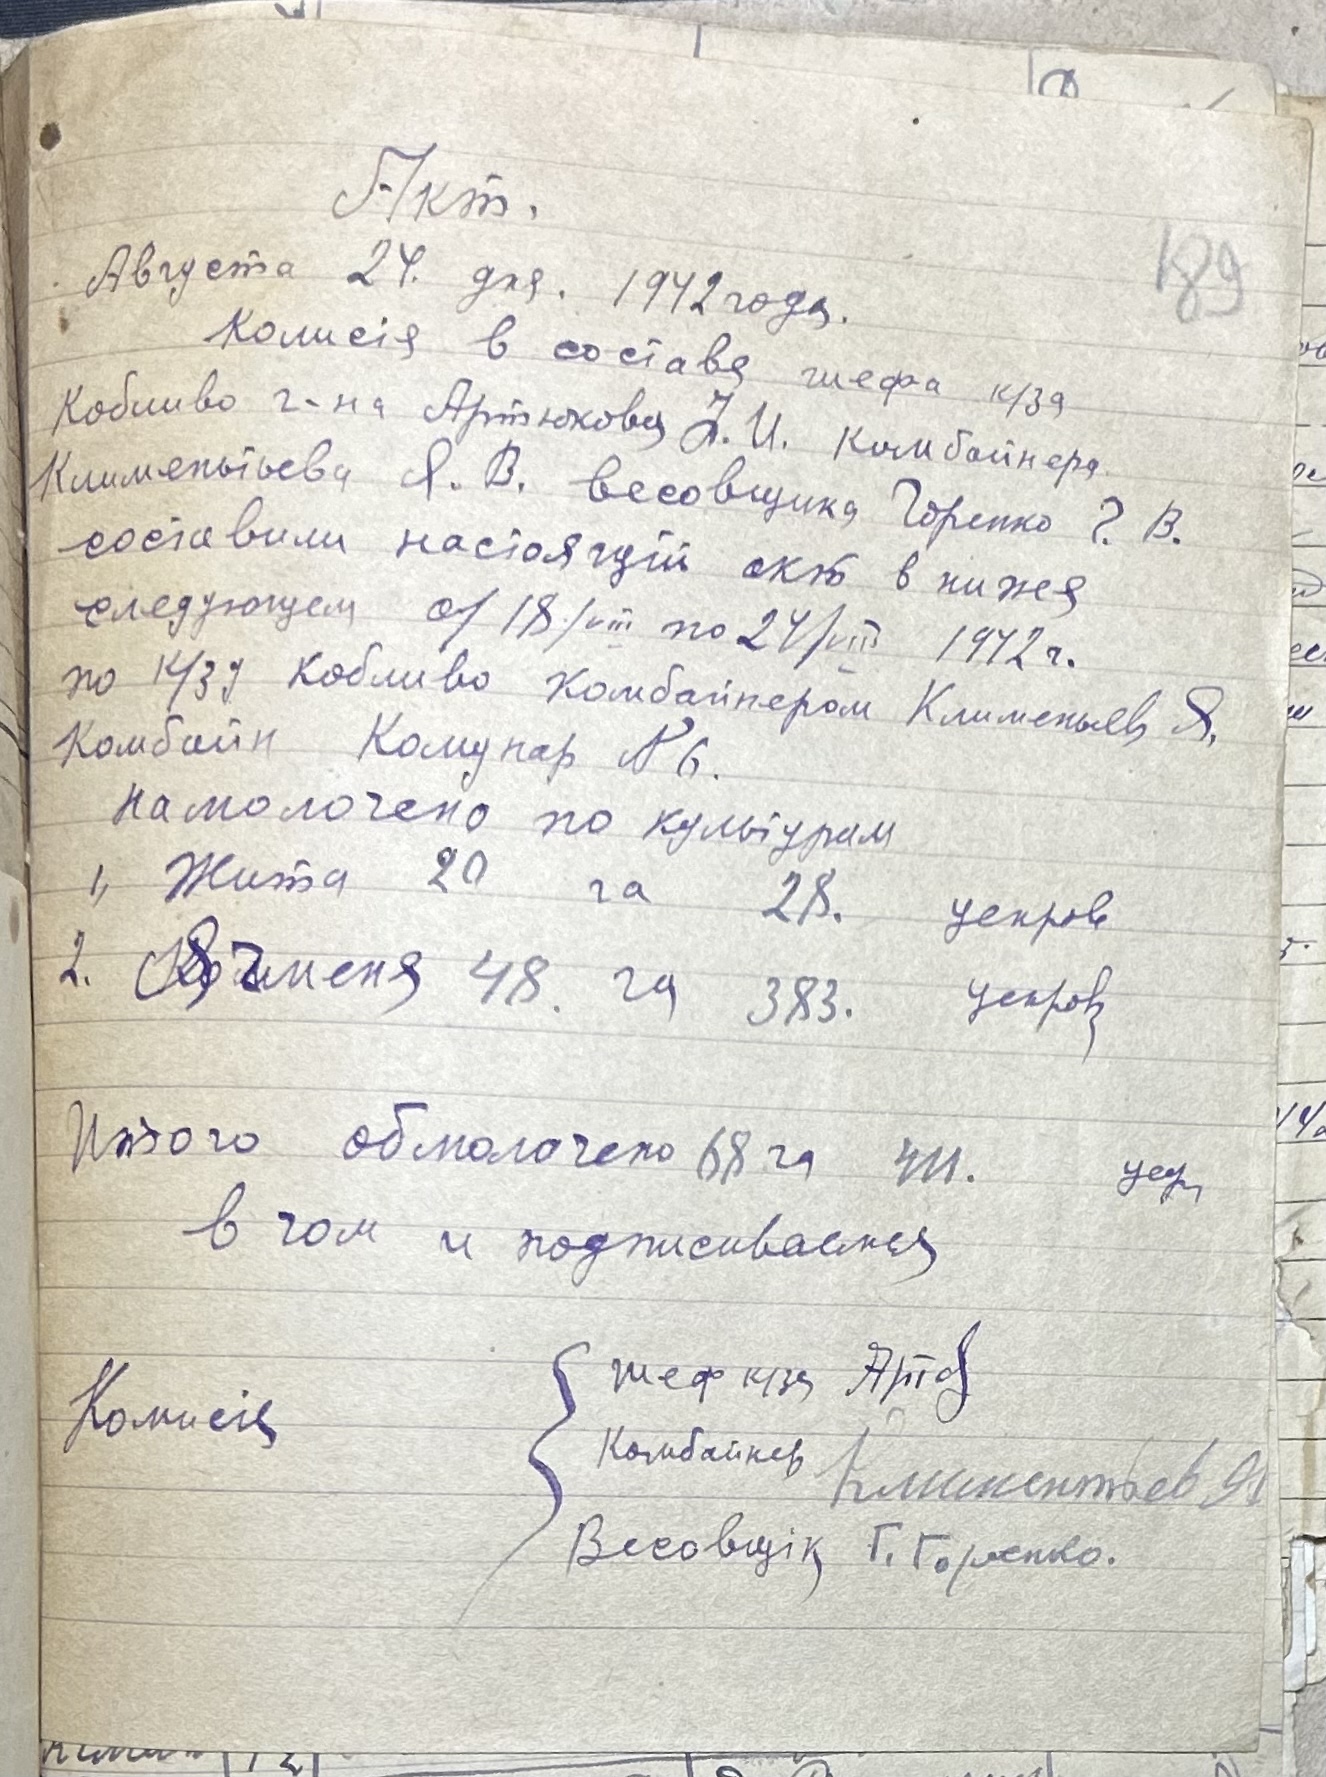 Акт.
189
Августа 24. дня. 1942 года.
Комисія в составя шефа к/за
Кобливо г-на Артюкова Я. И. Комбайнера
Климентьева Я. В. весовщика Горенко Г. В.
составили настоящій акт в нижея
следующем от 18/VIII по 24/VIII 1942 г.
по к/зу Кобливо Комбайнером Клименьев Я.
Комбайн Комунар № 6.
Намолочено по культурам
1, Жита 20 га 28. ценров
2. Ячменя 48. га 383. ценров
Итого обмолочено 68 га 411. цен
в чом и подписиваемся
Комисія
Шеф к/за
Комбайнер Климентьев Я
Весовщік Г. Горенко.